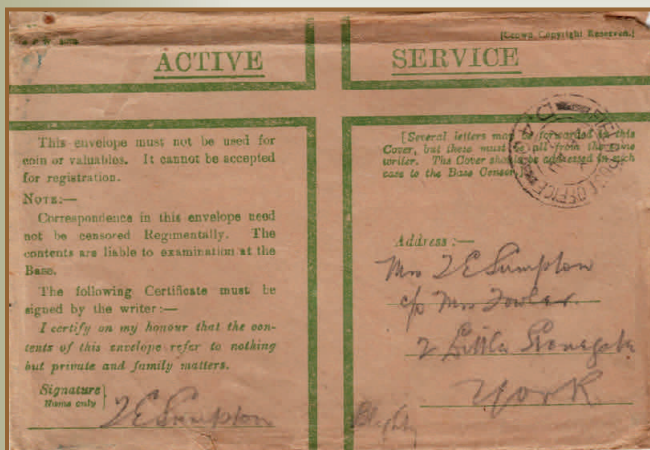 [Crown Copyright Reserved.]
ACTIVE SERVICE
This envelope must not be used for
coin or valuables. It cannot be accepted
for registration.
NOTE:—
Correspondence in this envelope need
not be censored Regimentally. The
contents are liable to examination at the
Base.
The following Certificate must be
signed by the writer:—
I certify on my honour that the con-
tents of this envelope refer to nothing
but private and family matters.
Signature
Name only
T E Sumpton
[Several letters may be forwarded in this
Cover, but these must be all from the same
writer. The Cover should be addressed in such
case to the Base Censor.
FIELD POST OFFICE
Address:—
Mrs T E Sumpton
c/o Mrs Fowler
2 Little Stonegate
York
Blighty